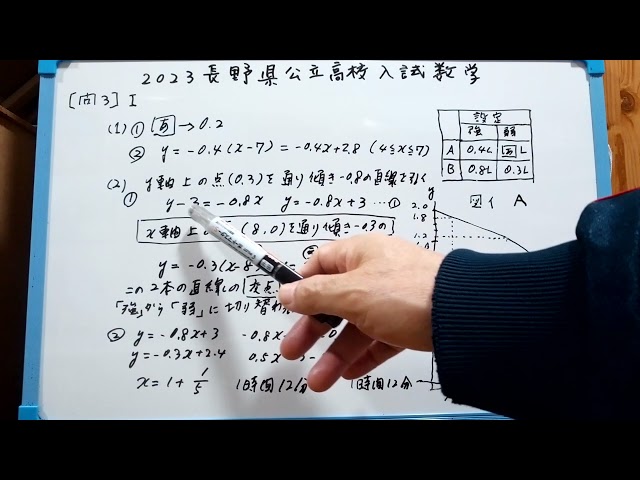 2023長野県公立高校入試数学
[問3] I
(1) ① あ → 0.2
② y = -0.4(x-7) = -0.4x+2.8 (4≦x≦7)
(2) y軸上の点(0.3)を通り傾き-0.8の直線を引く
① y-3=-0.8x y=-0.8x+3 …①
x軸上の (8,0)を通り傾き-0.3の
y=-0.3(x-8)
この2本の直線の交点
「強」から「弱」に切り替わ
② y=-0.8x+3 -0.8x
y=-0.3x+2.4 0.5x
x=1+1/5 1時間12分 1時間12分
設定
強 弱
A 0.4L あL
B 0.8L 0.3L
y 図イ A
2.0
1.8
1.2